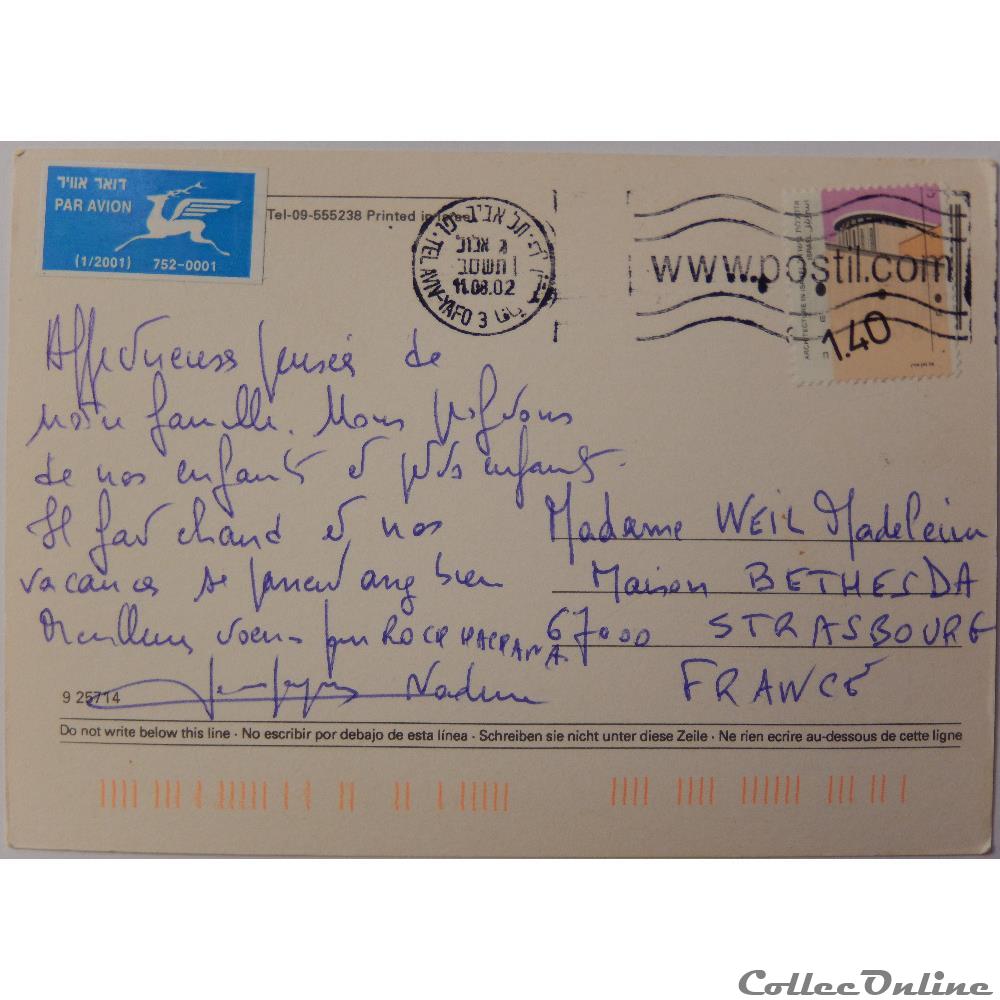 דואר אוויר
PAR AVION
(1/2001) 752-0001
Tel-09-555238 Printed in Israel
תל אביב-יפו
אלול
תשסב
11.08.02
TEL AVIV-YAFO 3
www.postil.com
ARCHITECTURE IN ISRAEL
1.40
Affectueuses pensées de
notre famille. Nous profitons
de nos enfants et petits enfants.
Il fait chaud et nos
vacances se passent bien
Meilleurs voeux pour ROCH HACHANA
Nadine
Madame WEIL Madeleine
Maison BETHESDA
67000 STRASBOURG
FRANCE
9 25714
Do not write below this line · No escribir por debajo de esta línea · Schreiben sie nicht unter diese Zeile · Ne rien ecrire au-dessous de cette ligne
CollecOnline